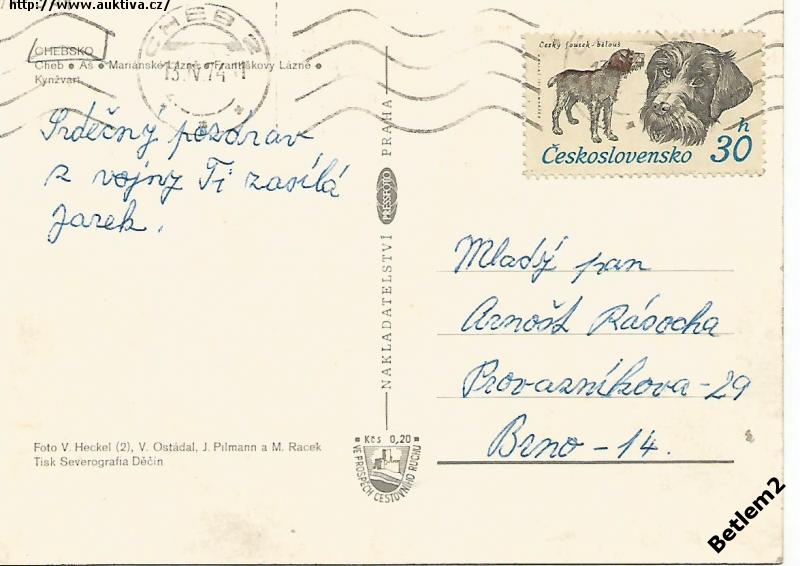 http://www.auktiva.cz/
CHEB 2
13.IV.74-11
CHEBSKO
Cheb • Aš • Mariánské Lázně • Františkovy Lázně •
Kynžvart
Srdečný pozdrav
z vojny Ti zasílá
Jarek.
Foto V. Heckel (2), V. Ostádal, J. Pilmann a M. Racek
Tisk Severografia Děčín
NAKLADATELSTVÍ PRESSFOTO PRAHA
Kčs 0,20
VE PROSPĚCH CESTOVNÍHO RUCHU
Český fousek-bělouš
Československo 30 h
Mladý pan
Arnošt Rásocha
Provazníkova - 29
Brno - 14.
Betlem2